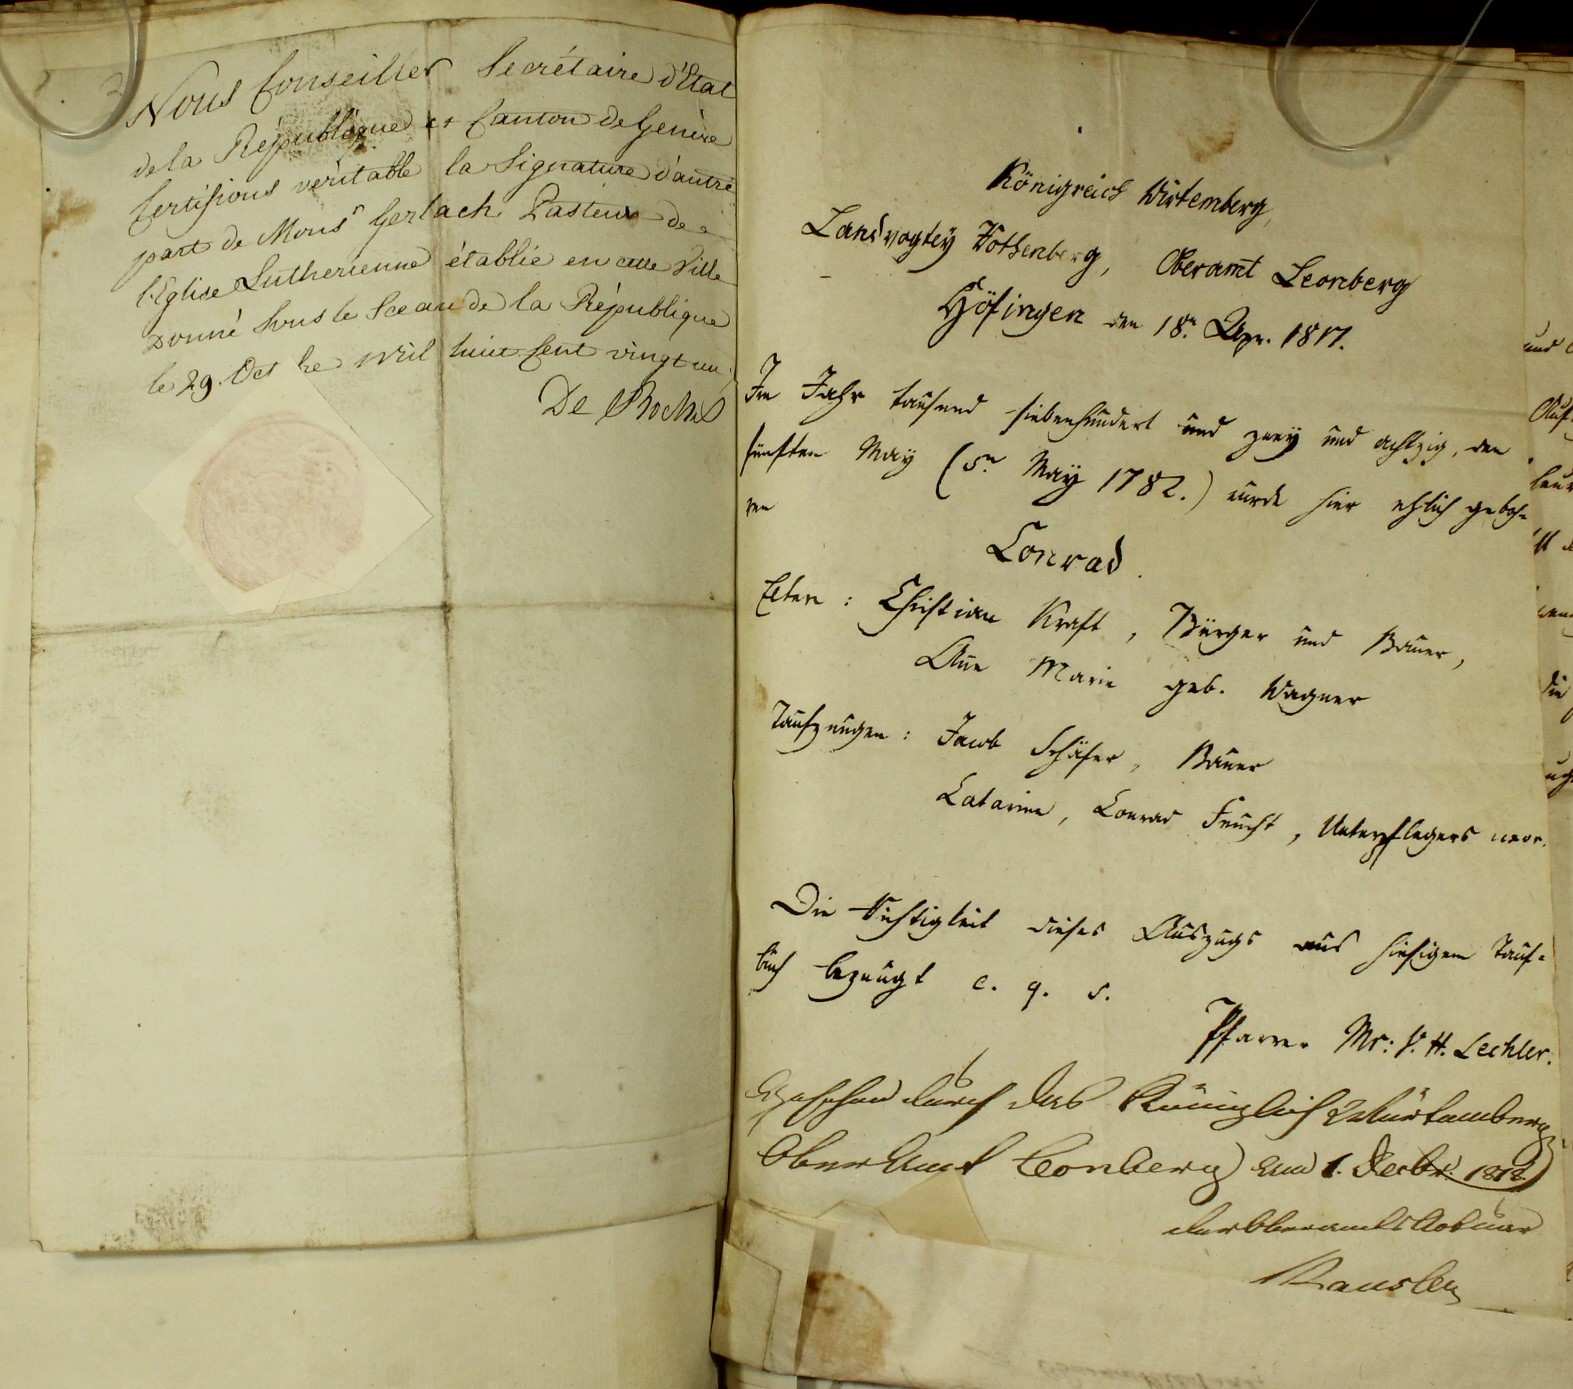 Nous Conseiller Secrétaire d'Etat
de la République et Canton de Genève
Certifions véritable la Signature d'autre
part de Monsr Gerlach Pasteur de
l'Eglise Lutherienne établie en cette Ville
Donné sous le Sceau de la République
le 29. Octbre Mil huit Cent vingt un
De Roches
Königreich Wirtemberg,
Landvogtey Rothenberg, Oberamt Leonberg
Höfingen den 18n. Apr. 1817.
Im Jahr tausend siebenhundert und zwey und achtzig, den
fünften May (5n May 1782.) wurde hier ehlich geboh-
ren
Conrad.
Elter: Christian Kraft, Bürger und Bauer,
Ann Marie geb. Wagner
Taufzeugen: Jacob Schäfer, Bauer
Catarina, Conrad Feucht, Unterpflegers uxor.
Die Richtigkeit dieses Auszugs aus hiesigem Tauf-
buch bezeugt c. q. s.
Pfarrer Mr: J. H. Lechler.
Gesehen durch das Königlich Würtemberg.
OberAmt Leonberg am 1. Decbr.
der Oberamts Actuar